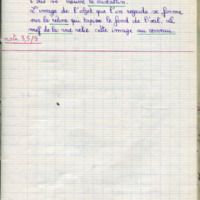 L'image de l'objet que l'on regarde se forme
sur la rétine qui tapisse le fond de l'œil. Le
nerf de la vue relie cette image au cerveau.
note 3,5/5